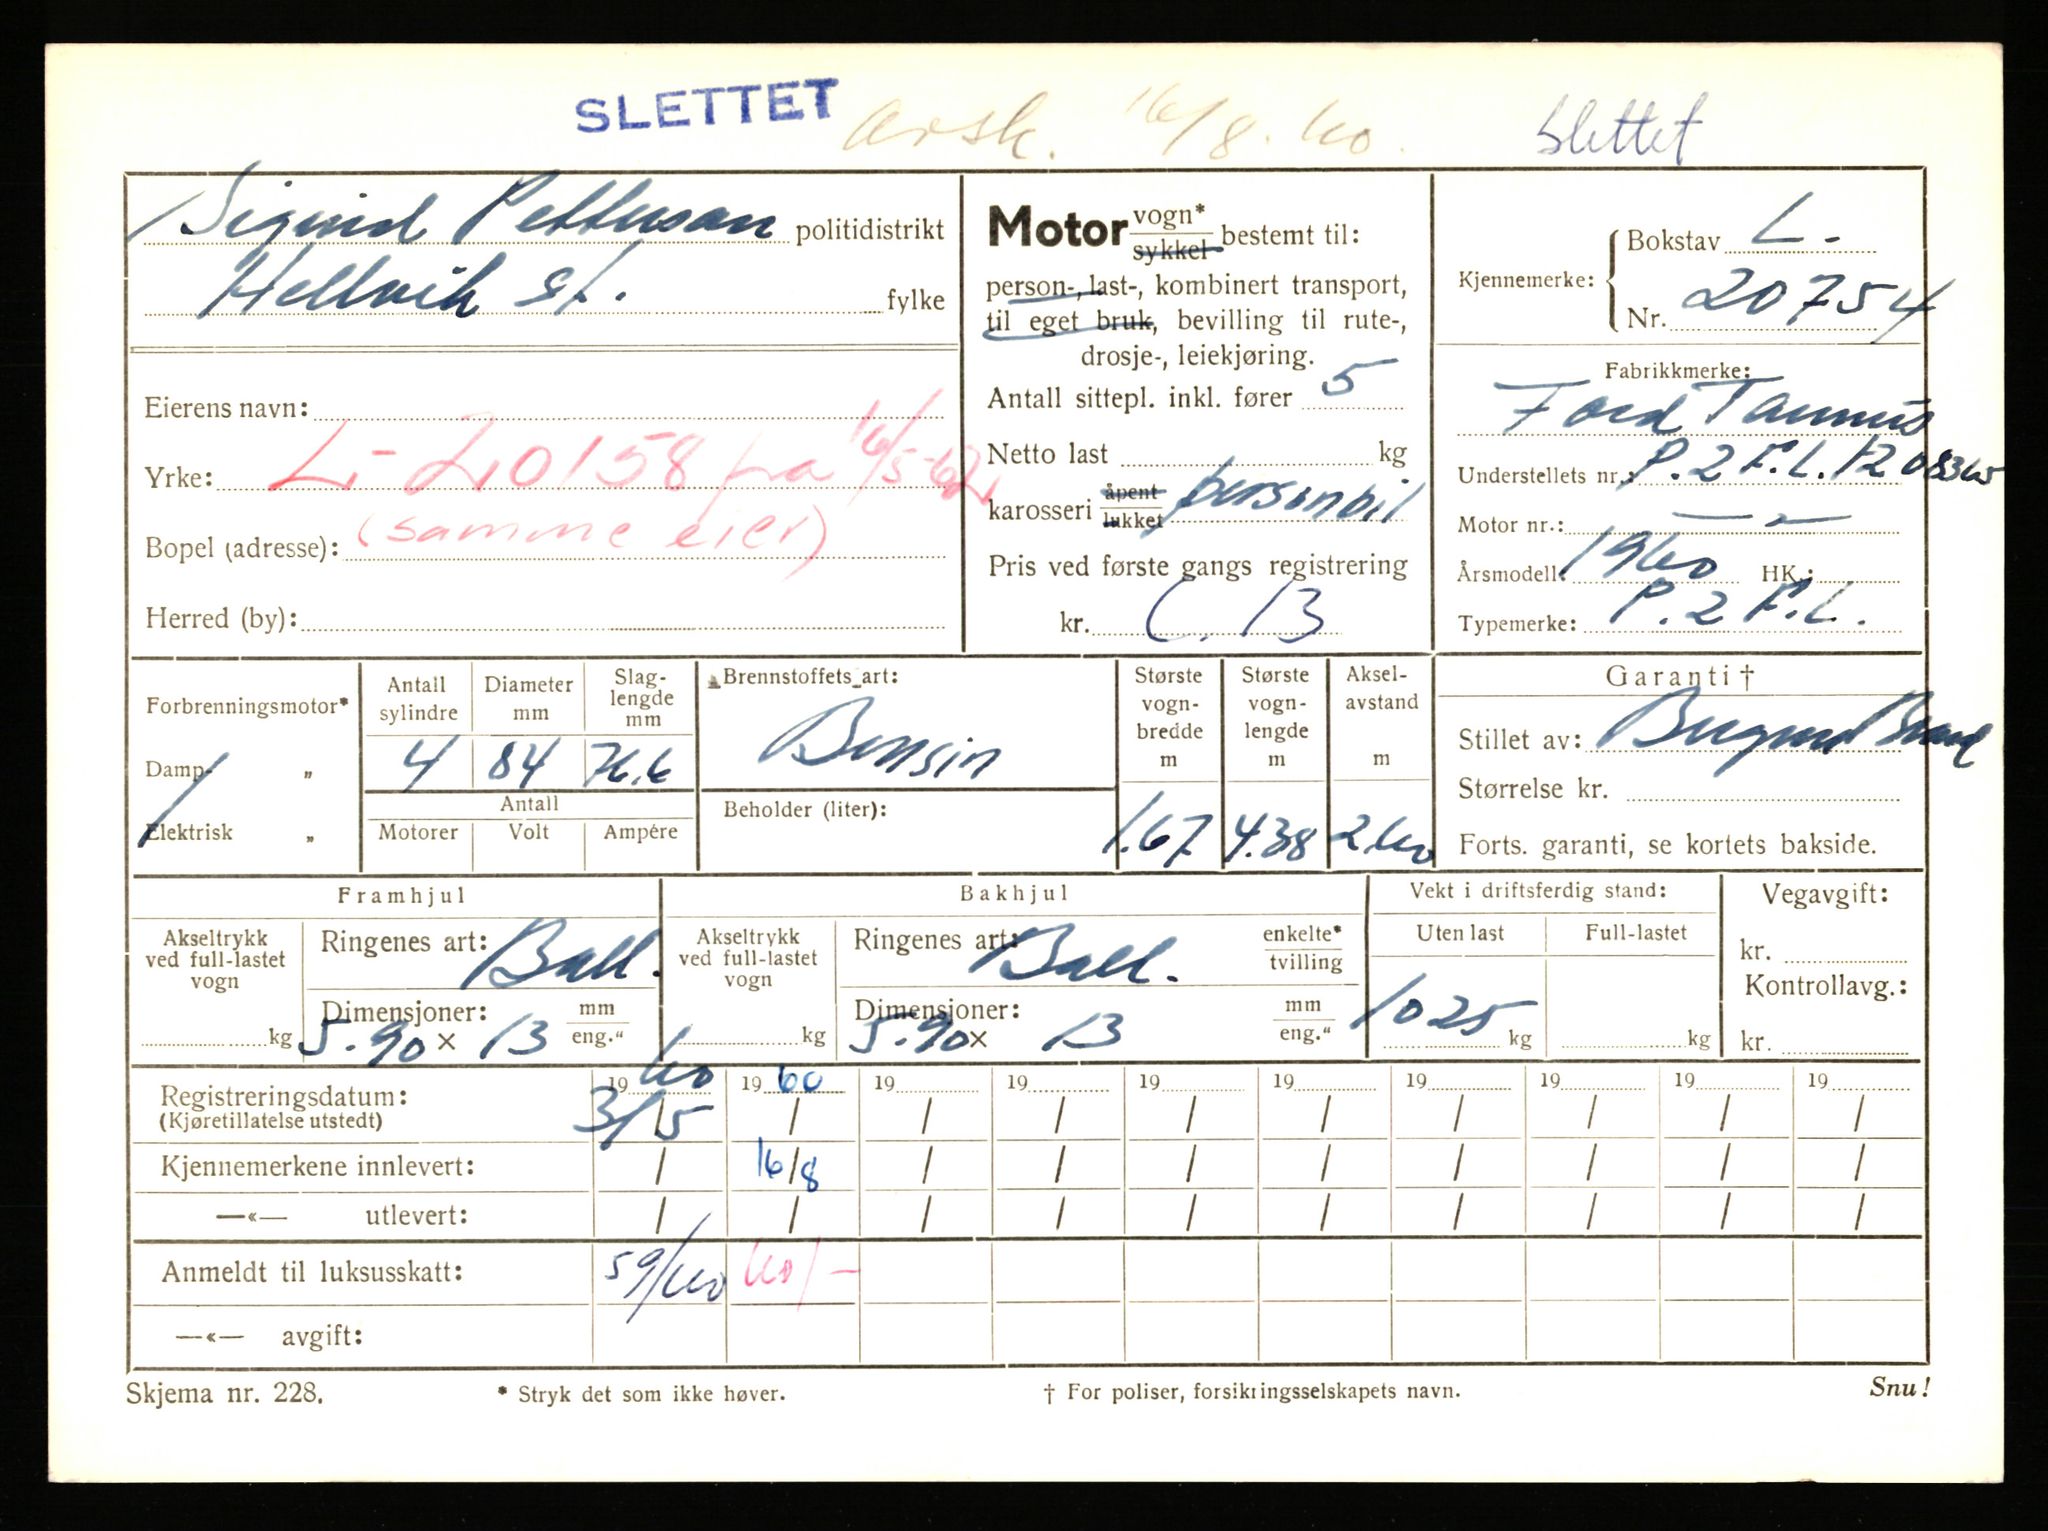 SLETTET avsk. 16/8.60. Slettet
Sigurd Pettersen politidistrikt
Hellvik st. fylke
Eierens navn:
Yrke: L-20158 på 16/5-62
Bopel (adresse): (samme eier)
Herred (by):
Motor vogn* / sykkel bestemt til:
person-, last-, kombinert transport,
til eget bruk, bevilling til rute-,
drosje-, leiekjøring.
Antall sittepl. inkl. fører 5
Netto last kg
karosseri åpent / lukket personbil
Pris ved første gangs registrering
kr. C. 13
Kjennemerke: Bokstav L.
Nr. 20754
Fabrikkmerke:
Ford Taunus
Understellets nr.: P.2 F.L. 1208365
Motor nr.: — " —
Årsmodell: 1960 HK.:
Typemerke: P. 2 F.L.
Forbrenningsmotor*
Damp- "
Elektrisk "
Antall sylindre Diameter mm Slag-lengde mm
4 84 76.6
Antall
Motorer Volt Ampére
Brennstoffets art:
Bensin
Beholder (liter):
Største vogn-bredde m Største vogn-lengde m Aksel-avstand m
1.67 4.38 2.60
Garanti †
Stillet av: Brand
Størrelse kr.
Forts. garanti, se kortets bakside.
Framhjul
Akseltrykk ved full-lastet vogn kg
Ringenes art: Ball.
Dimensjoner: mm / eng."
5.90 x 13
Bakhjul
Akseltrykk ved full-lastet vogn kg
Ringenes art: Ball. enkelte* / tvilling
Dimensjoner: mm / eng."
5.90 x 13
Vekt i driftsferdig stand:
Uten last Full-lastet
1025 kg kg
Vegavgift:
kr.
Kontrollavg.:
kr.
19 60 19 60 19 19 19 19 19 19 19 19
Registreringsdatum: 3/5 / / / / / / / / /
(Kjøretillatelse utstedt)
Kjennemerkene innlevert: / 16/8 / / / / / / / /
—«— utlevert: / / / / / / / / / /
Anmeldt til luksusskatt: 59/60 60/-
—«— avgift:
Skjema nr. 228. * Stryk det som ikke høver. † For poliser, forsikringsselskapets navn. Snu!